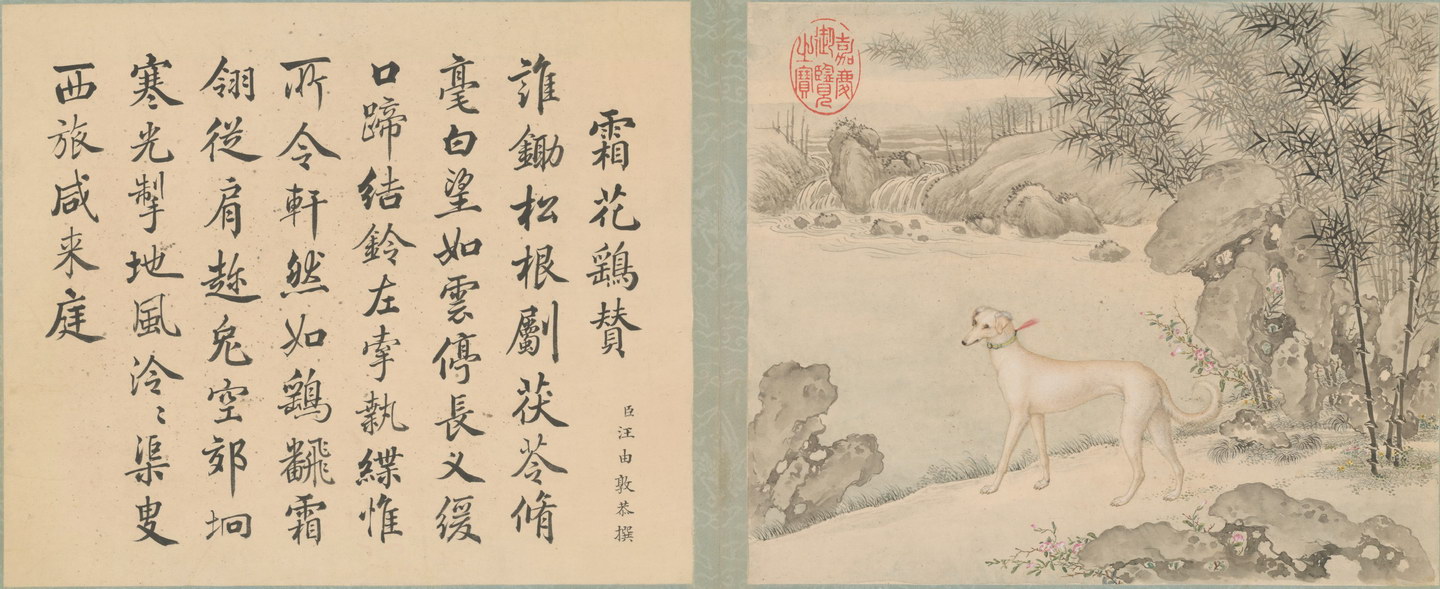 霜花鷂賛
臣汪由敦恭撰
誰鋤松根劚茯苓脩
毫白望如雲停長义緩
口蹄結鈴左牽執緤惟
所令軒然如鷂飜霜
翎從肩趂兔空郊坰
寒光掣地風泠〻渠叟
西旅咸来庭
嘉慶御覽之寶